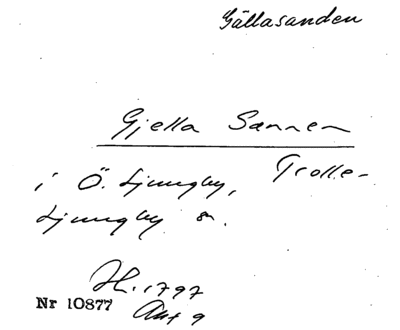 Gällasanden
Gjella Sannen
i Ö. Ljungby, Trolle-
Ljungby sn.
H. 1797
Nr 10877 Akt 9